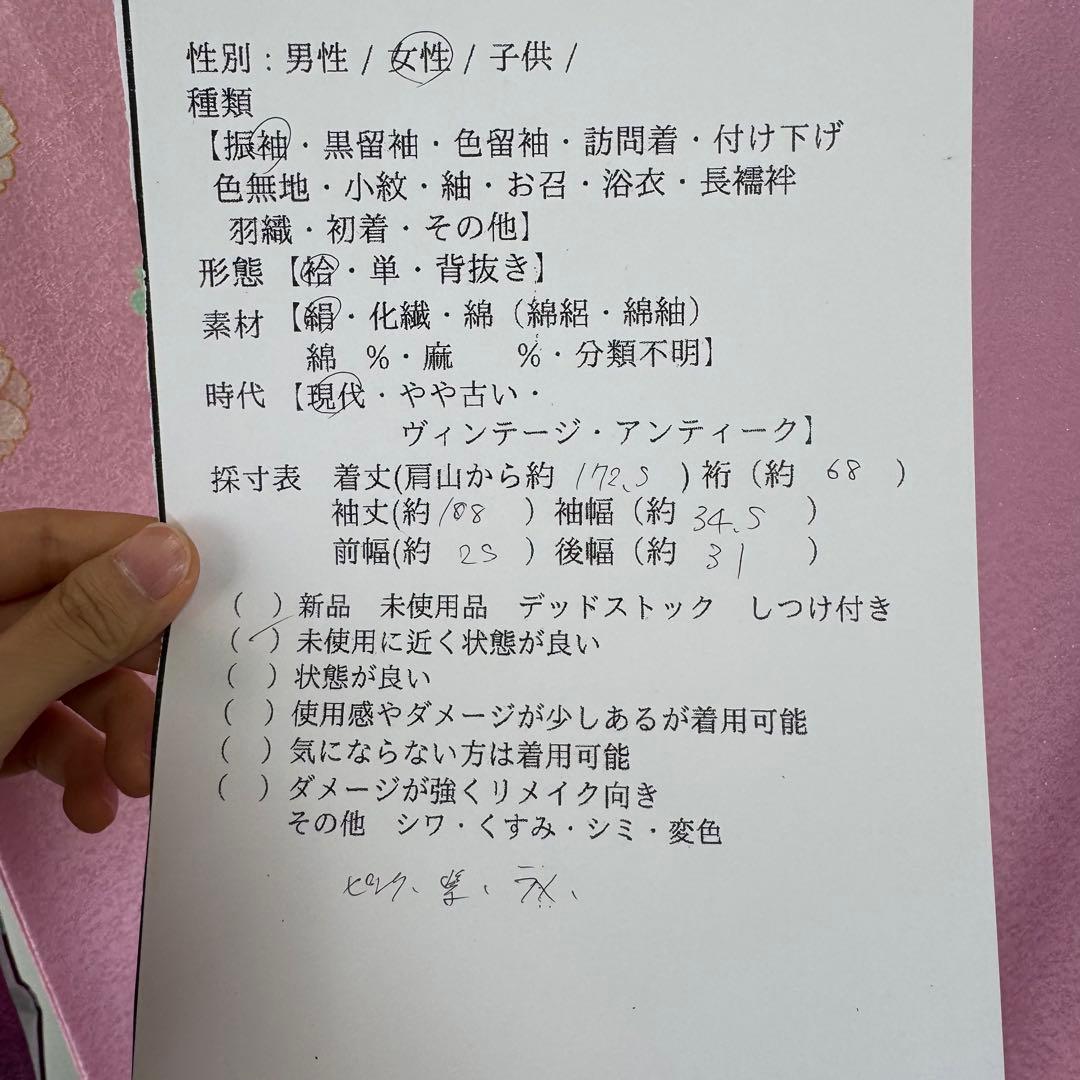 性別：男性 / 女性 / 子供 /
種類
【振袖・黒留袖・色留袖・訪問着・付け下げ
色無地・小紋・紬・お召・浴衣・長襦袢
羽織・初着・その他】
形態【袷・単・背抜き】
素材【絹・化繊・綿（綿絽・綿紬）
綿 %・麻 %・分類不明】
時代【現代・やや古い・
ヴィンテージ・アンティーク】
採寸表 着丈(肩山から約 172.5 ) 裄（約 68 ）
袖丈(約 108 ）袖幅（約 34.5 ）
前幅(約 25 ）後幅（約 31 ）
（ ）新品 未使用品 デッドストック しつけ付き
（✓）未使用に近く状態が良い
（ ）状態が良い
（ ）使用感やダメージが少しあるが着用可能
（ ）気にならない方は着用可能
（ ）ダメージが強くリメイク向き
その他 シワ・くすみ・シミ・変色
ピンク、紫、